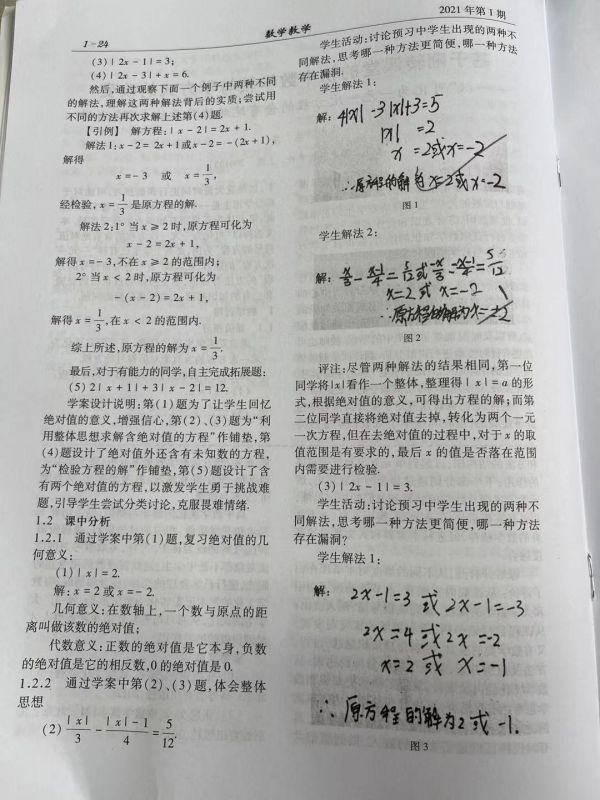 1－24
数学教学
2021 年第 1 期
(3) | 2x－1 | = 3;
(4) | 2x－3 | + x = 6.
然后,通过观察下面一个例子中两种不同
的解法,理解这两种解法背后的实质;尝试用
不同的方法再次求解上述第(4)题.
【引例】 解方程: | x－2 | = 2x + 1.
解法 1: x－2 = 2x + 1 或 x－2 = －(2x + 1),
解得
x = －3 或 x = 1/3,
经检验, x = 1/3 是原方程的解.
解法 2:1° 当 x ≥ 2 时,原方程可化为
x－2 = 2x + 1,
解得 x = －3,不在 x ≥ 2 的范围内;
2° 当 x < 2 时,原方程可化为
－(x－2) = 2x + 1,
解得 x = 1/3,在 x < 2 的范围内.
综上所述,原方程的解为 x = 1/3.
最后,对于有能力的同学,自主完成拓展题:
(5) 2 | x + 1 | + 3 | x－2 | = 12.
学案设计说明:第(1)题为了让学生回忆
绝对值的意义,增强信心,第(2)、(3)题为“利
用整体思想求解含绝对值的方程”作铺垫,第
(4)题设计了绝对值外还含有未知数的方程,
为“检验方程的解”作铺垫,第(5)题设计了含
有两个绝对值的方程,以激发学生勇于挑战难
题,引导学生尝试分类讨论,克服畏难情绪.
1.2 课中分析
1.2.1 通过学案中第(1)题,复习绝对值的几
何意义:
(1) | x | = 2.
解: x = 2 或 x = －2.
几何意义:在数轴上,一个数与原点的距
离叫做该数的绝对值;
代数意义:正数的绝对值是它本身,负数
的绝对值是它的相反数,0 的绝对值是 0.
1.2.2 通过学案中第(2)、(3)题,体会整体
思想
(2) | x |/3 － (| x |－1)/4 = 5/12.
学生活动:讨论预习中学生出现的两种不
同解法,思考哪一种方法更简便,哪一种方法
存在漏洞.
学生解法 1:
解: 4|x| －3|x|+3=5
|x| =2
x =2或x=-2
∴原方程的解为x=2或x=-2
图 1
学生解法 2:
解: x/3 － (x-1)/4 = 5/12 或 -x/3 － (-x-1)/4 = 5/12
x=2 或 x=-2
∴原方程的解为x=±2
图 2
评注:尽管两种解法的结果相同,第一位
同学将|x|看作一个整体,整理得 | x | = a 的形
式,根据绝对值的意义,可得出方程的解;而第
二位同学直接将绝对值去掉,转化为两个一元
一次方程,但在去绝对值的过程中,对于 x 的取
值范围是有要求的,最后 x 的值是否落在范围
内需要进行检验.
(3) | 2x－1 | = 3.
学生活动:讨论预习中学生出现的两种不
同解法,思考哪一种方法更简便,哪一种方法
存在漏洞?
学生解法 1:
解: 2x-1=3 或 2x-1=-3
2x=4 或 2x=-2
x=2 或 x=-1
∴ 原方程的解为2 或 -1.
图 3